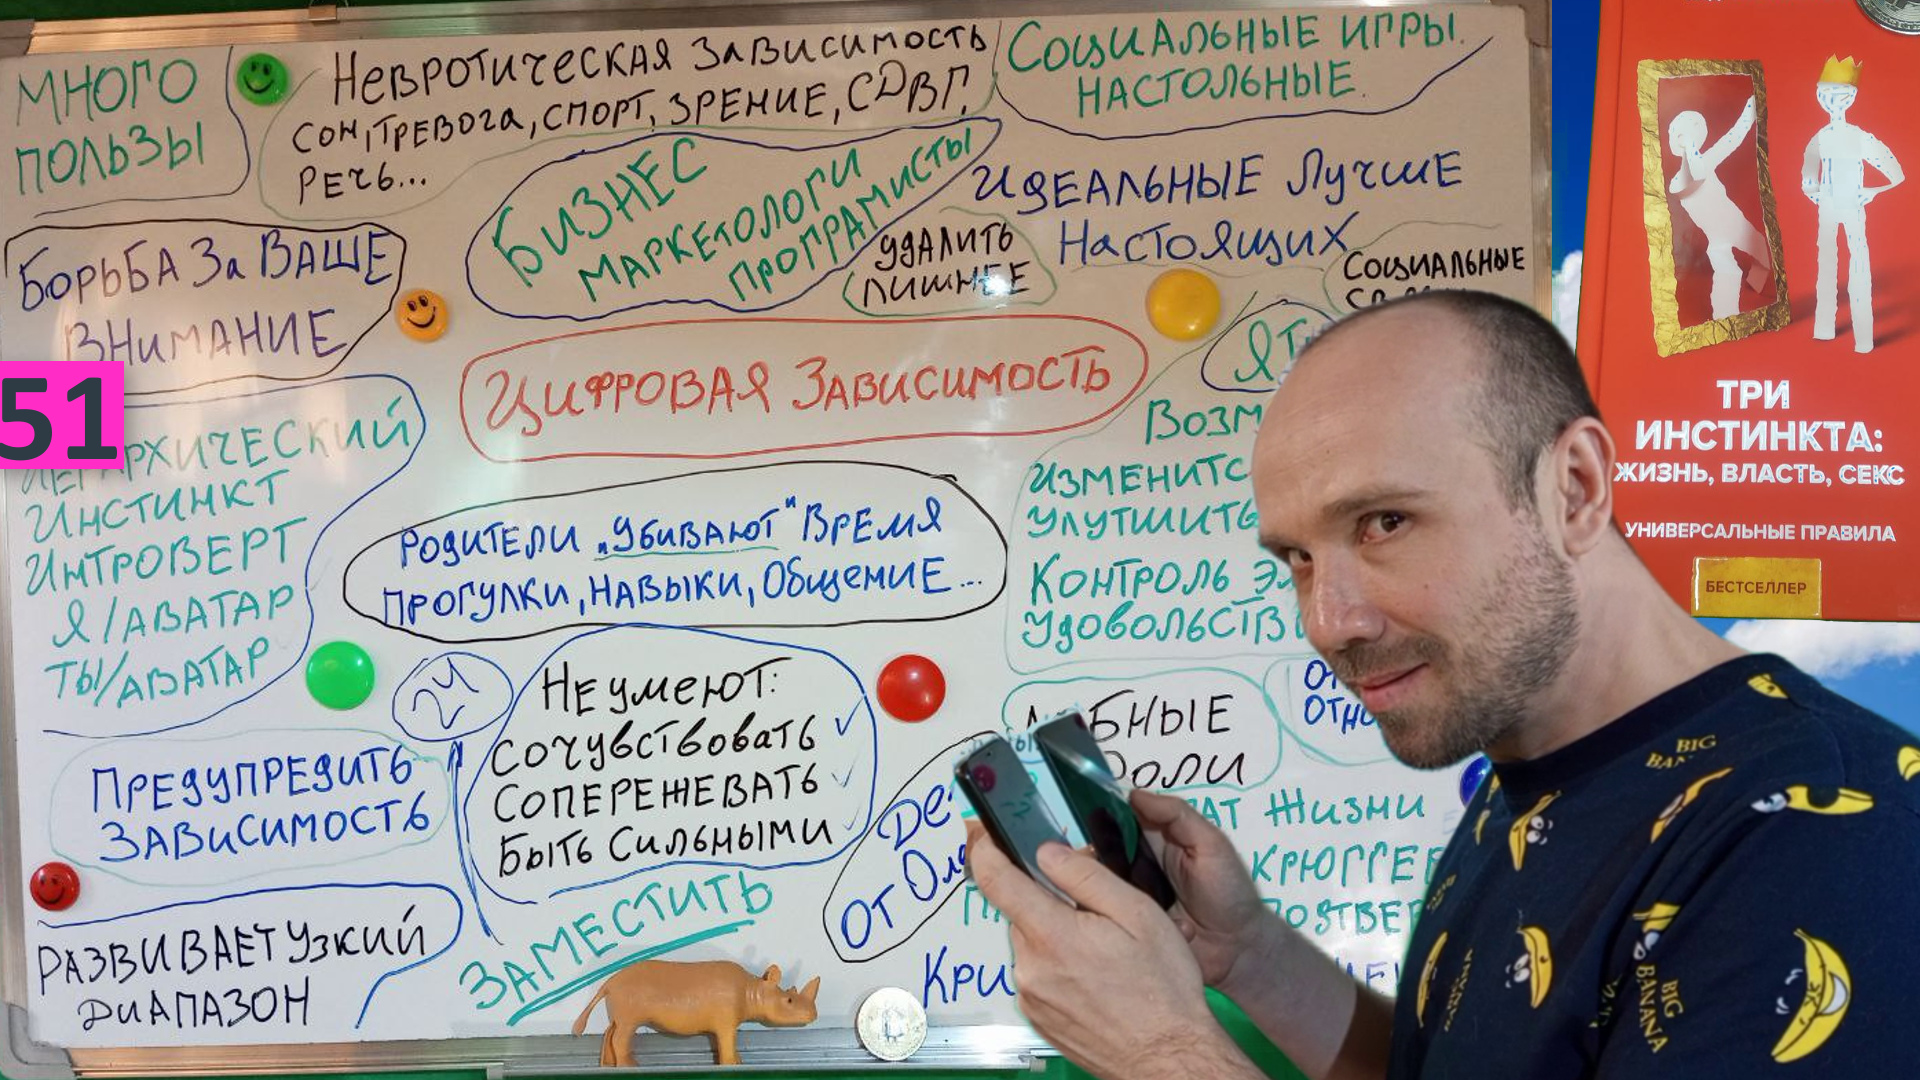 МНОГО
ПОЛЬЗЫ
НЕВРОТИЧЕСКАЯ ЗАВИСИМОСТЬ
СОН, ТРЕВОГА, СПОРТ, ЗРЕНИЕ, СДВГ,
РЕЧЬ...
СОЦИАЛЬНЫЕ ИГРЫ.
НАСТОЛЬНЫЕ.
БИЗНЕС
МАРКЕТОЛОГИ
ПРОГРАМИСТЫ
УДАЛИТЬ
ЛИШНЕЕ
ИДЕАЛЬНЫЕ ЛУЧШЕ
НАСТОЯЩИХ
СОЦИАЛЬНЫЕ
БОРЬБА ЗА ВАШЕ
ВНИМАНИЕ
51
ЦИФРОВАЯ ЗАВИСИМОСТЬ
ИЕРАРХИЧЕСКИЙ
ИНСТИНКТ
ИНТРОВЕРТ
Я/АВАТАР
ТЫ/АВАТАР
РОДИТЕЛИ „УБИВАЮТ" ВРЕМЯ
ПРОГУЛКИ, НАВЫКИ, ОБЩЕНИЕ...
ИЗМЕНИТС
УЛУТШИТЬ
КОНТРОЛЬ
УДОВОЛЬСТВ
24
НЕ УМЕЮТ:
СОЧУВСТВОВАТЬ
СОПЕРЕЖЕВАТЬ
БЫТЬ СИЛЬНЫМИ
ПРЕДУПРЕДИТЬ
ЗАВИСИМОСТЬ
РАЗВИВАЕТ УЗКИЙ
ДИАПАЗОН
ЗАМЕСТИТЬ
ОТ
КРИ
ЖИЗНИ
КРЮГГЕР
ТРИ
ИНСТИНКТА:
ЖИЗНЬ, ВЛАСТЬ, СЕКС
УНИВЕРСАЛЬНЫЕ ПРАВИЛА
БЕСТСЕЛЛЕР
BIG
BANANA